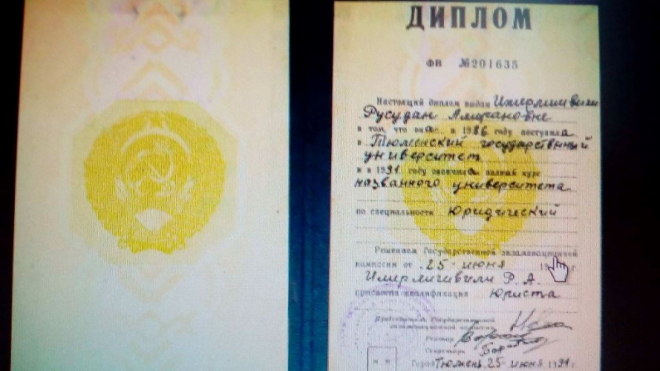 ДИПЛОМ
ФВ №201635
Настоящий диплом выдан
Русудан Амирановне
в том, что она в 1986 году поступила
в Тюменский государственный
университет
и в 1991 году окончила полный курс
названного университета
по специальности Юридический
Решением Государственной экзаменационной
комиссии от 25 июня
Р. А.
присвоена квалификация Юриста
Председатель Государственной
экзаменационной комиссии
Ректор
Секретарь
Город Тюмень 25 июня 1991